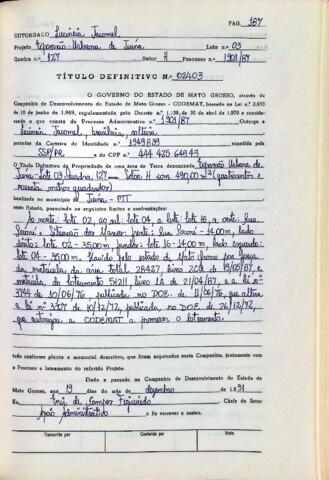 PAG. 187
OUTORGADO Lucinéia Jacomel
Projeto Expansão Urbana de Juína Lote n.o 03
Quadra n.o 127 Setor H Processo n.o 1901/87
TÍTULO DEFINITIVO N.o 02403
O GOVERNO DO ESTADO DE MATO GROSSO, através da
Companhia de Desenvolvimento do Estado de Mato Grosso - CODEMAT, baseado na Lei n.o 2.933
de 10 de junho de 1.969, regulamentada pelo Decreto n.o 1.138 de 30 de abril de 1970 e considerando
o que consta do Processo Administrativo n.o 1901/87 Outorga a
Lucinéia Jacomel, brasileira, solteira
portador da Carteira de Identidade n.o 1949839 expedida pela
SSP/PR e do CPF n.o 444 425 649 49
O Título Definitivo da Propriedade de uma área de Terra denominada Expansão Urbana de
Juína - Lote 03 Quadra 127 Setor H com 490,00 m2 (quatrocentos e
noventa metros quadrados)
localizada no município de Juína - MT
neste Estado, possuindo os seguintes limites e confrontações:
Ao norte: lote 02, ao sul: lote 04, a leste: lote 16, a oeste: Rua
frente: Rua 14,00m, lado
direito: lote 02 - 35,00m fundos: lote 16 - 14,00m, lado esquerdo:
lote 04 - 35,00m. Havido pelo estado de Mato Grosso por força
da matrícula da área total 28427, livro 2CQ de 19/05/87, e
matrícula do loteamento 54211 livro 1A de 21/04/87, e a lei nº
3744 de 10/06/76, publicada no DOE de 11/06/76, que altera
a lei nº 3307 de 10/12/72, publicada no DOE de 26/12/72,
que autoriza a CODEMAT a promover o loteamento.
tudo conforme planta e memorial descritivo, que ficam arquivados nesta Companhia, juntamente com
o Processo e loteamento do referido Projeto.
Dado e passado na Companhia de Desenvolvimento do Estado de
Mato Grosso, aos 19 dias do mês de dezembro de 1.991
Eu, Inês de Campos Figueiredo Chefe do Setor
Apoio Administrativo o fiz escrever e assino.
Transcrito por Conferido por Visto